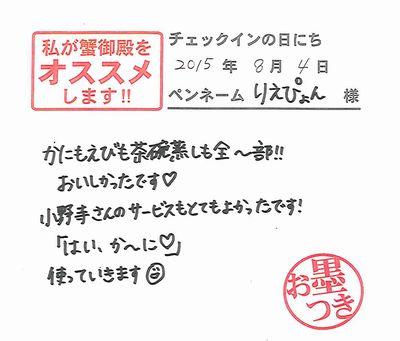 私が蟹御殿を
オススメ
します!!
チェックインの日にち
2015 年 8 月 4 日
ペンネーム りえぴょん 様
かにもえびも茶碗蒸しも全〜部!!
おいしかったです♡
小野寺さんのサービスもとてもよかったです!
「はい、か〜に♡」
使っていきます☺
お墨つき